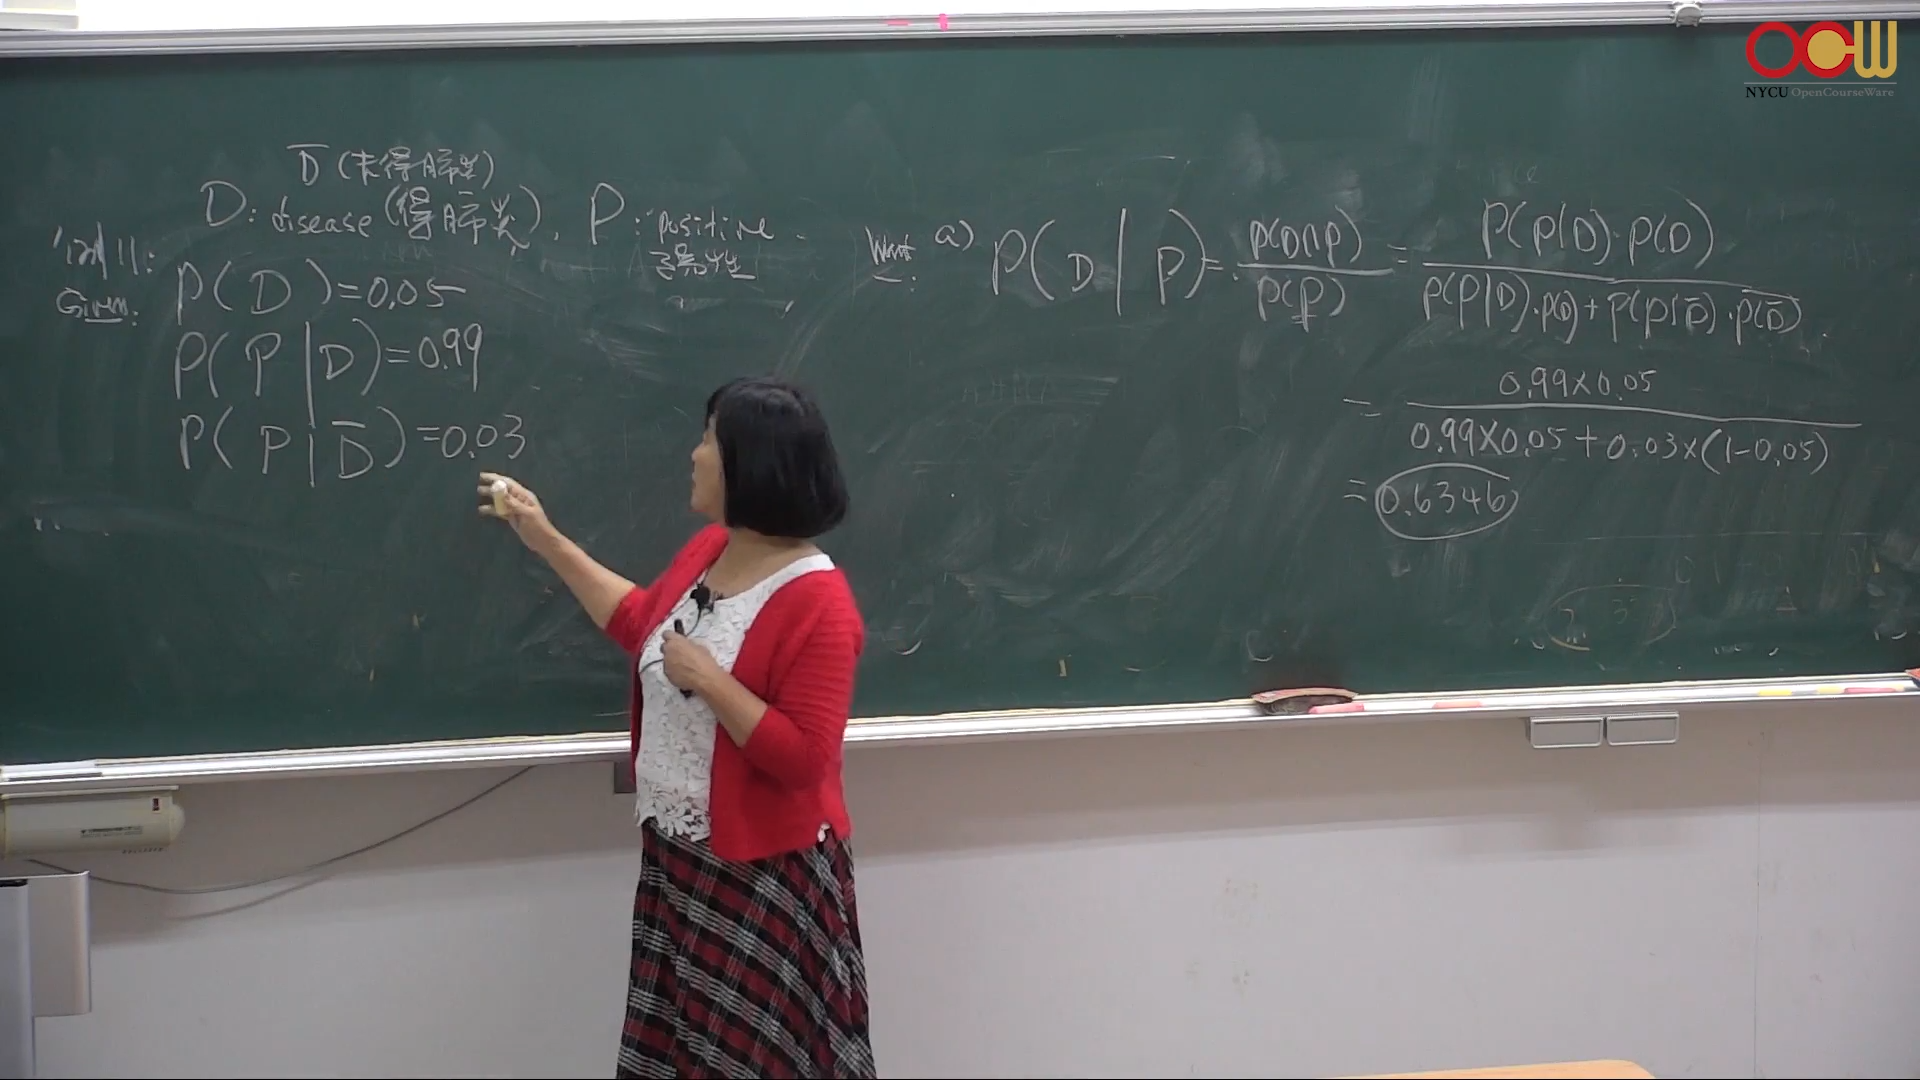 OCW
NYCU OpenCourseWare
D̅ (未得肺炎)
D: disease (得肺炎), P: positive
陽性
例11:
Given:
P(D)=0.05
P(P|D)=0.99
P(P|D̅)=0.03
Want: a) P(D|P) = P(D∩P) / P(P) = P(P|D)·P(D) / P(P|D)·P(D)+P(P|D̅)·P(D̅)
= 0.99×0.05 / 0.99×0.05+0.03×(1-0.05)
= 0.6346